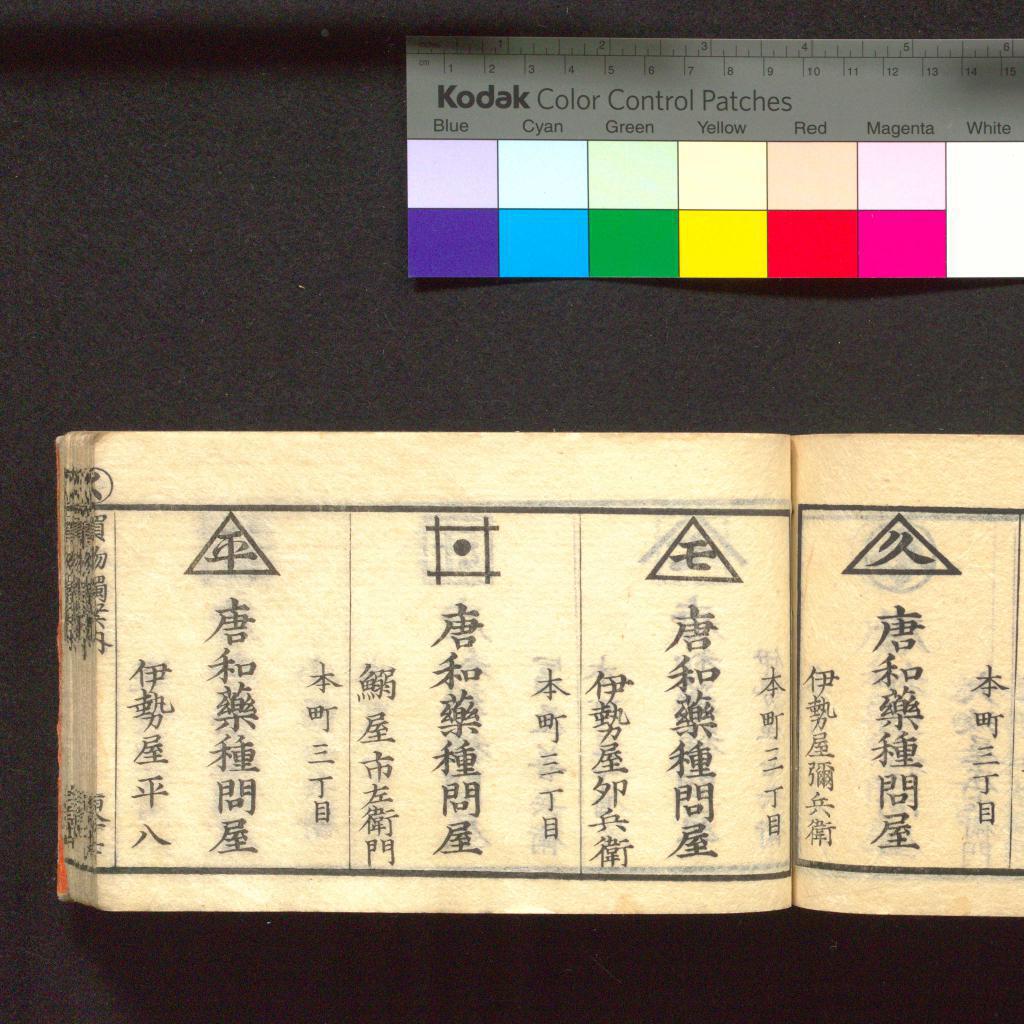 Kodak Color Control Patches
Blue Cyan Green Yellow Red Magenta White
inches 1 2 3 4 5 6
cm 1 2 3 4 5 6 7 8 9 10 11 12 13 14 15
久
本町三丁目
唐和藥種問屋
伊勢屋彌兵衛
モ
本町三丁目
唐和藥種問屋
伊勢屋卯兵衛
本町三丁目
唐和藥種問屋
鰯屋市左衛門
平
本町三丁目
唐和藥種問屋
伊勢屋平八